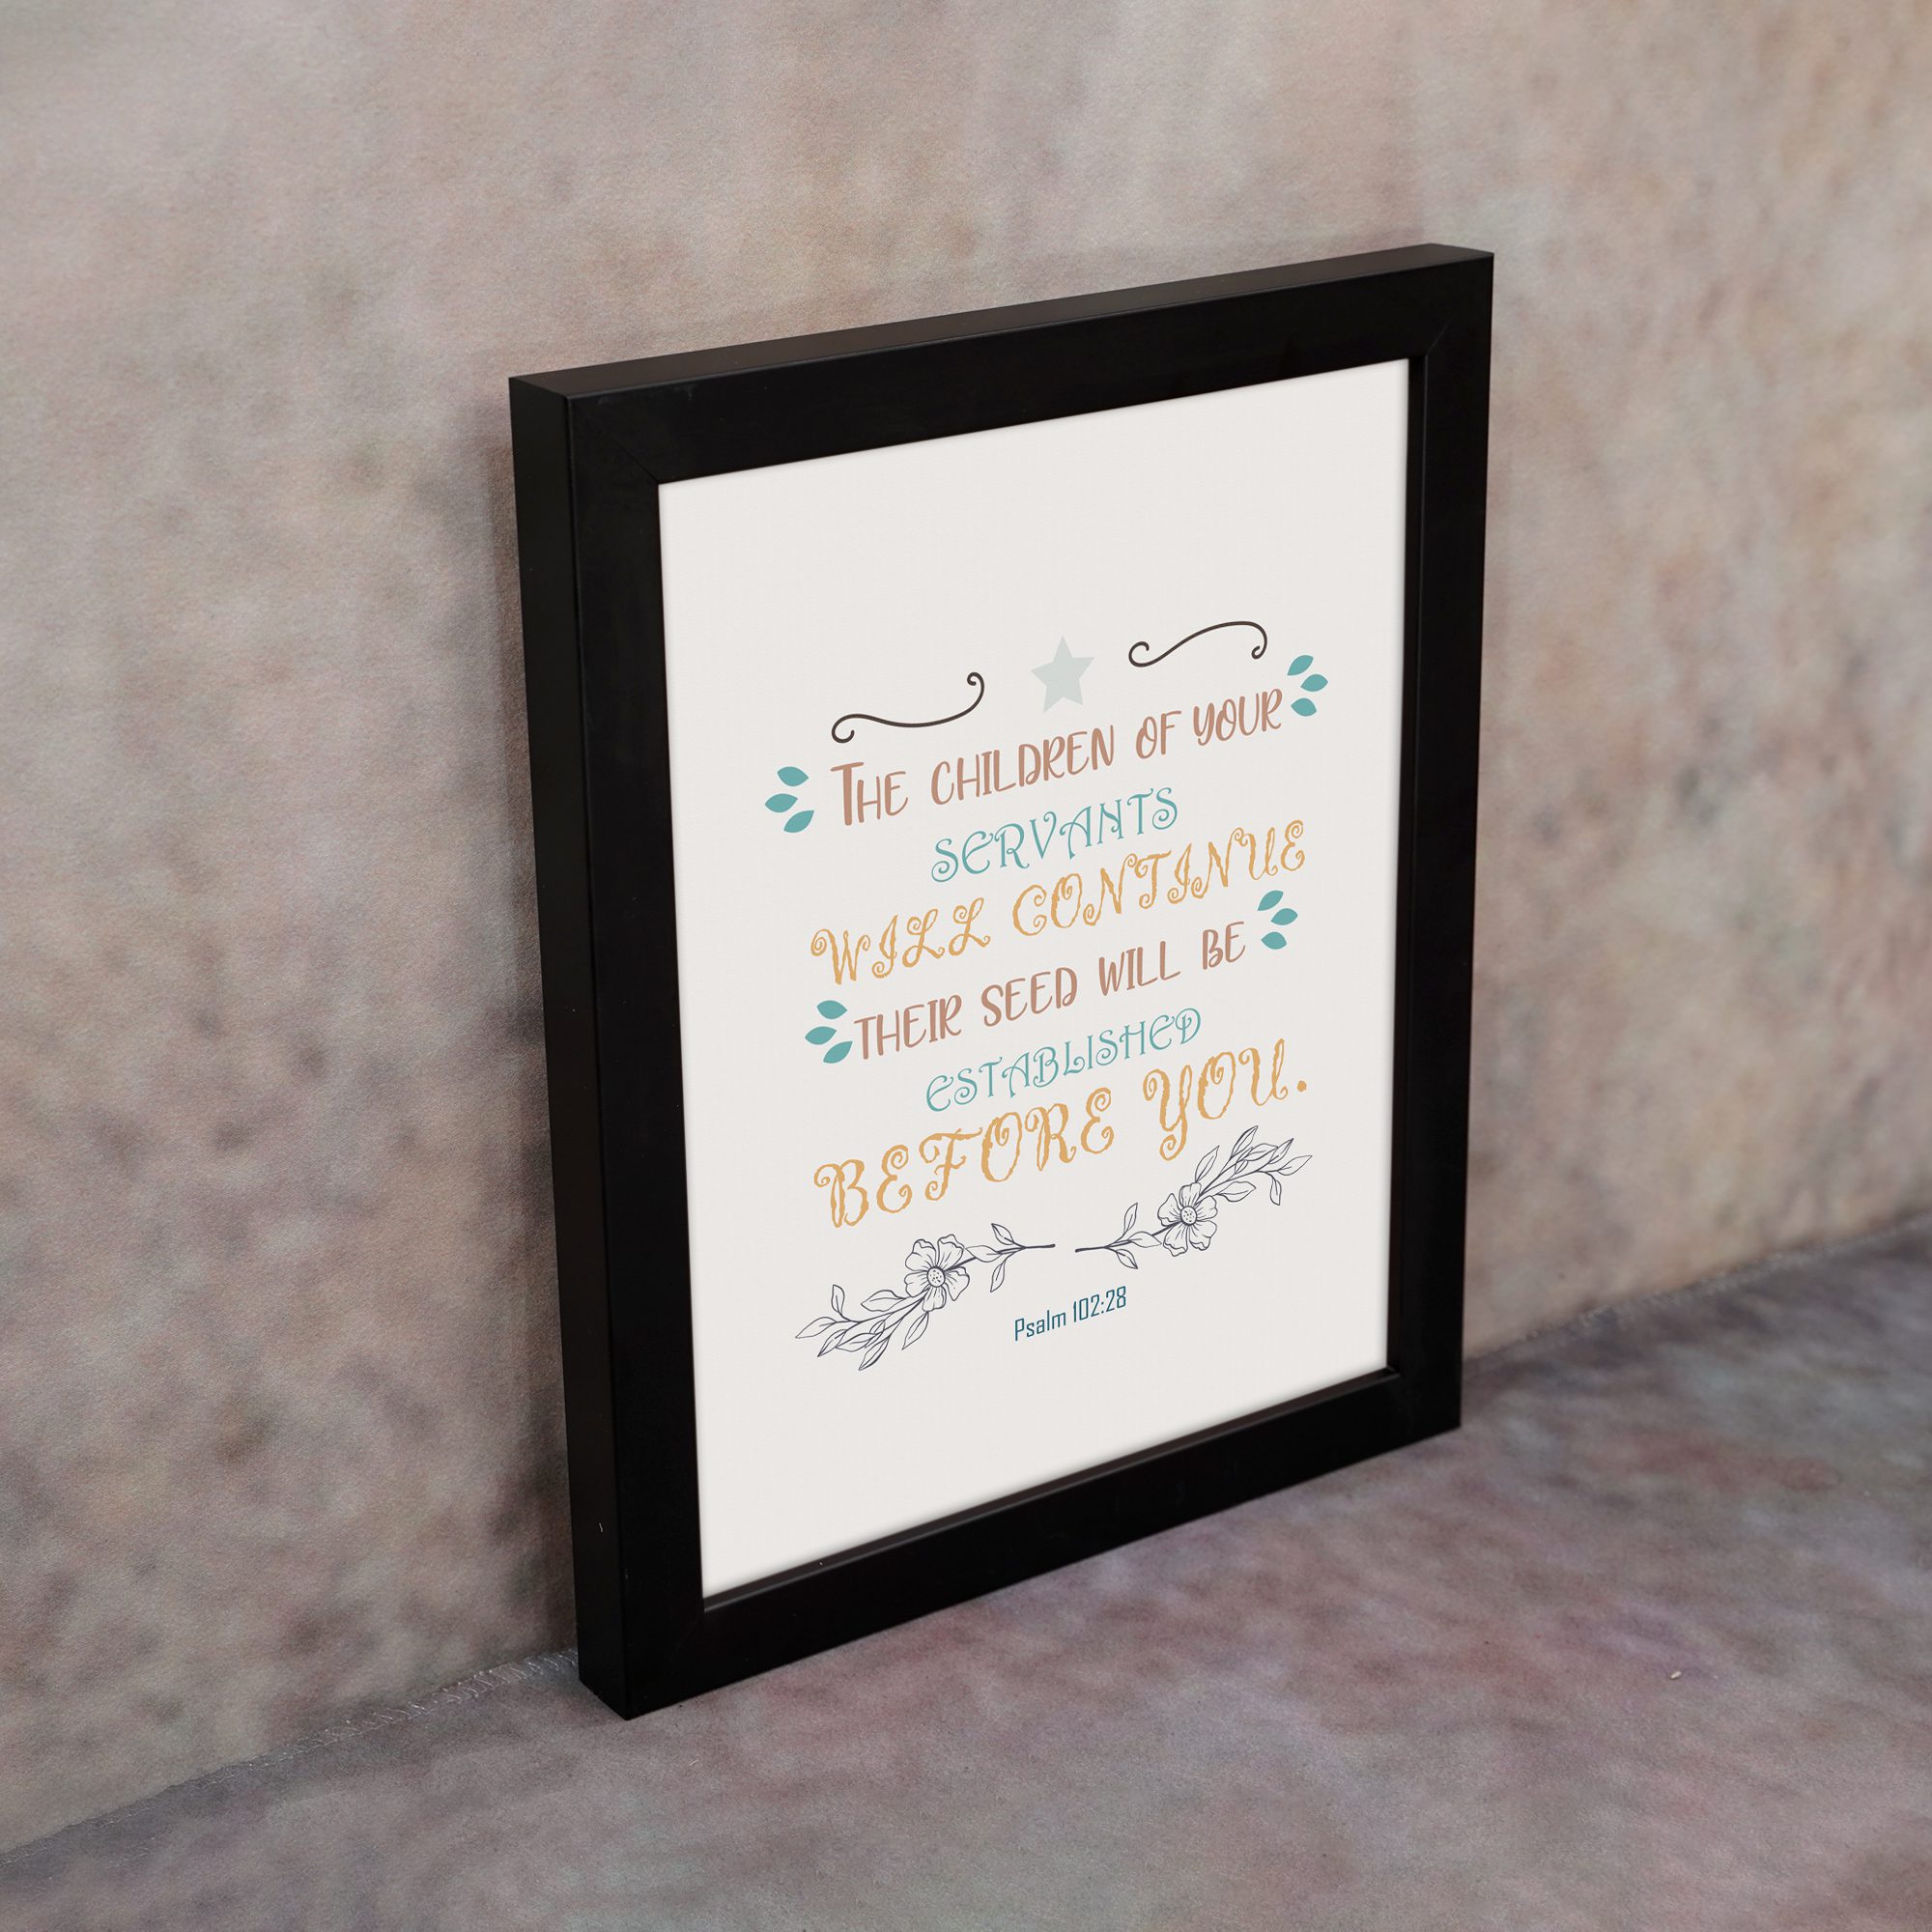 The children of your
servants
will continue
their seed will be
established
before you.
Psalm 102:28